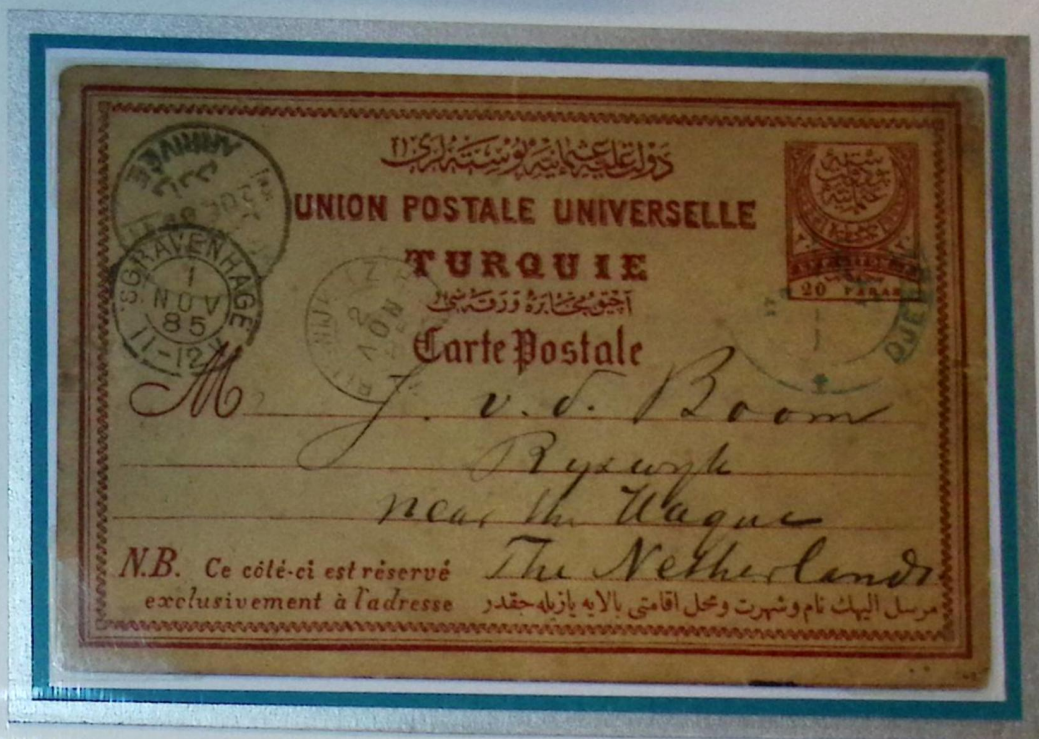 دولت علیه عثمانیه پوسته لری
UNION POSTALE UNIVERSELLE
TURQUIE
آچیق مخابره ورقه سی
Carte Postale
20 PARAS
ARRIVÉE
'SGRAVENHAGE
1
NOV
85
11-12
2
NOV
DJE
M J. v. d. Boom
Ryswyk
near the Hague
The Netherlands
N.B. Ce côté-ci est réservé
exclusivement à l'adresse
مرسل الیهك نام و شهرت و محل اقامتی بالایه یازیله جقدر